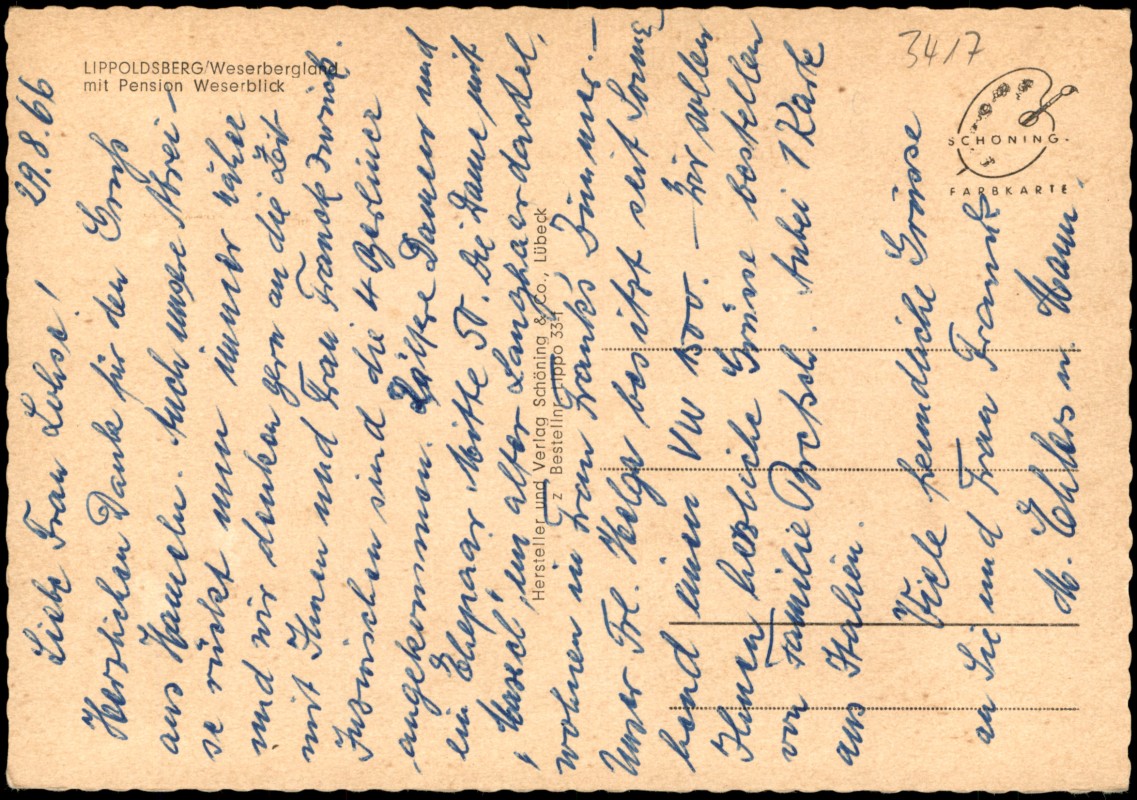 LIPPOLDSBERG/Weserbergland
mit Pension Weserblick
34/7
SCHÖNING-
FARBKARTE
Hersteller und Verlag Schöning & Co., Lübeck
Bestellnr. Lippo 33
29.8.66
Liebe Frau Lohse!
Herzlichen Dank für den Gruß
aus Hameln. Auch unsere Abrei-
se rückt nun immer näher
und wir denken gern an die Zeit
mit Ihnen und Frau Franck zurück.
Inzwischen sind die 4 Berliner
angekommen. 2 ältere Damen und
ein Ehepaar Mitte 50. Die Dame mit
"ein alter Langhaardackel,
wohnen in Frau Francks Zimmer. –
Unser Frl. Helga besitzt seit Sonna
bend einen VW 1500. – Wir sollen
Ihnen herzliche Grüsse bestellen
von Familie Anbei 1 Karte
aus Italien.
Viele freundliche Grüsse
an Sie und Frau Franck
M. Ehlers u. Mann.